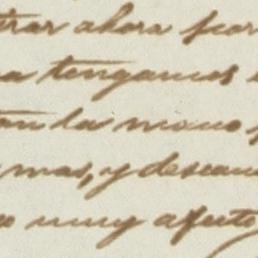 trar ahora por
a tengamos
tan la mano
mas, y descan
o muy afecto